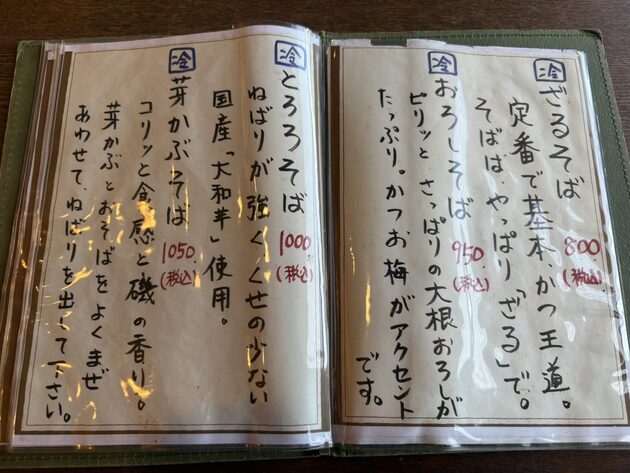 冷 ざるそば 800(税込)
定番で基本、かつ王道。
そばは、やっぱり「ざる」で。
冷 おろしそば 950(税込)
ピリッと、さっぱりの大根おろしが
たっぷり。かつお梅がアクセント
です。
冷 とろろそば 1000(税込)
ねばりが強くくせの少ない
国産「大和芋」使用。
冷 芽かぶそば 1050(税込)
コリッと食感と磯の香り。
芽かぶとおそばをよくまぜ
あわせて、ねばりを出して下さい。